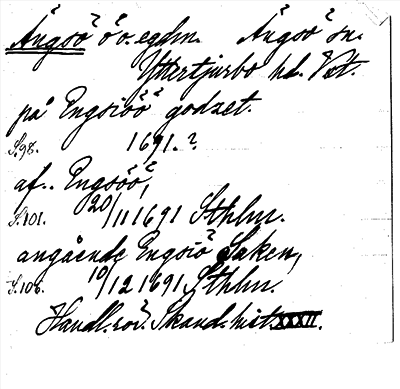 Ängsö ö o. egdm. Ängsö sn.
Yttertjurbo hd. Vst.
på Engsiöö godzet.
S. 98. 1691.?
af.. Engsöö,
S. 101. 20/11 1691 Sthlm.
angående Engsiö Saken,
S. 106. 10/12 1691 Sthlm.
Handl. rör. Skand. hist. XXXII.